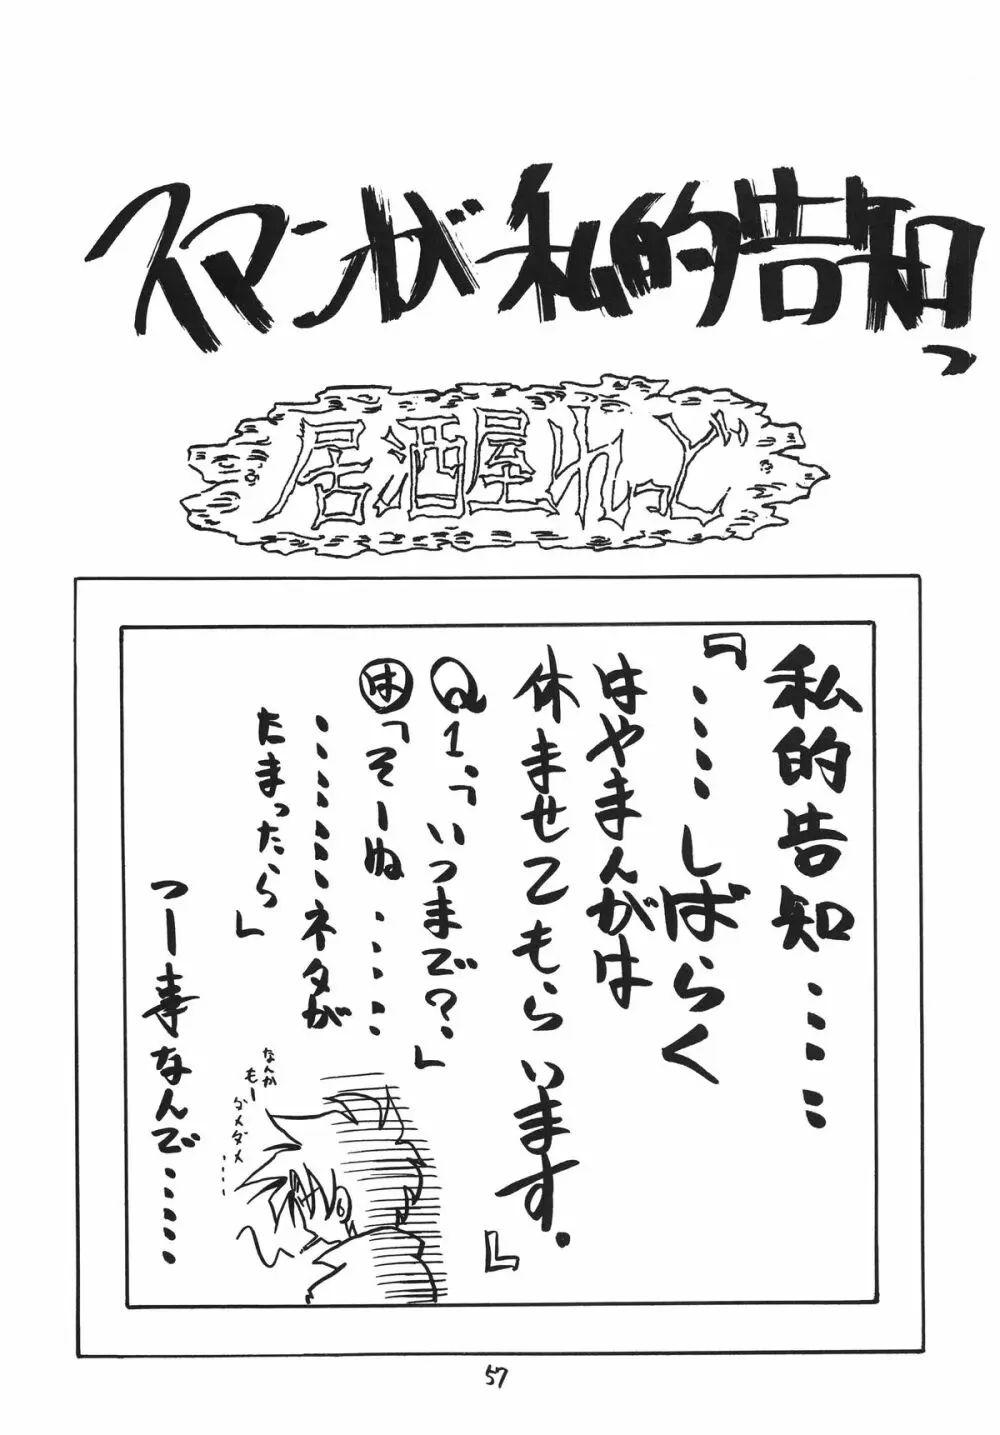 スマンが私的告知っ
居酒屋れっど
私的告知‥‥
『‥‥しばらく
はやまんがは
休ませてもらいます。』
Q1、「いつまで?」
は「そーぬ‥‥
‥‥‥‥ネタが
たまったら」
つー事なんで‥‥‥
なんか
もー
ダメダメ
‥‥
57